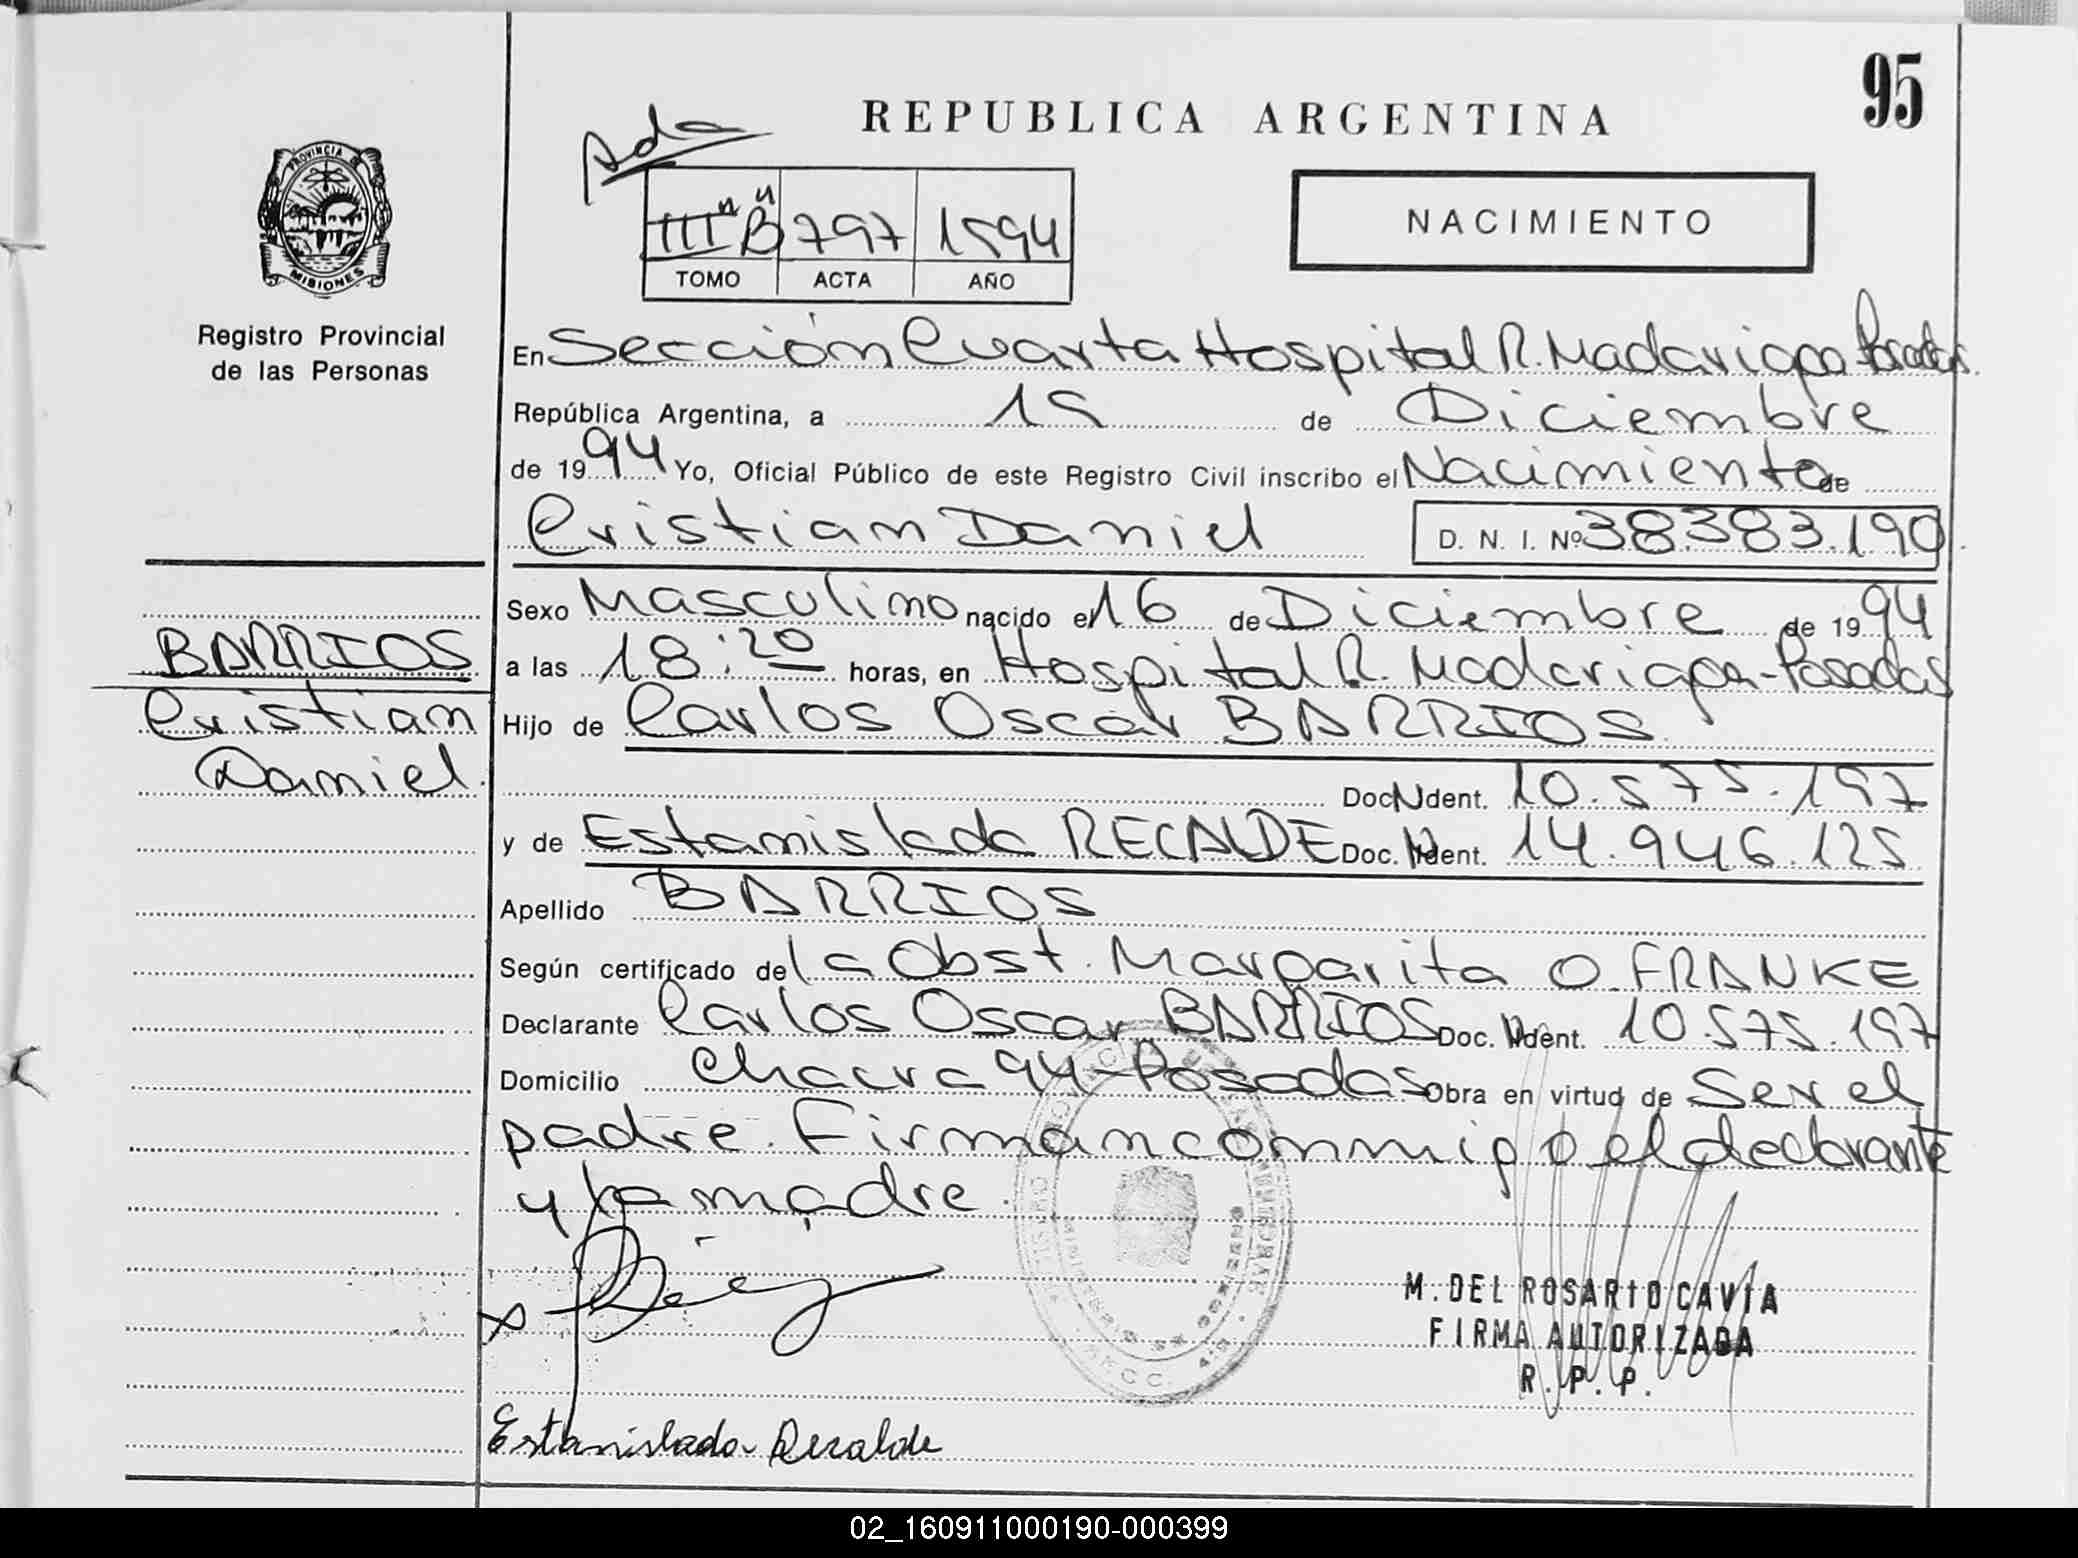 95
REPUBLICA ARGENTINA
Ada
III "B" 797 1994
TOMO ACTA AÑO
NACIMIENTO
PROVINCIA DE
MISIONES
Registro Provincial
de las Personas
En Sección Cuarta Hospital R. Madariaga Posadas.
República Argentina, a 19 de Diciembre
de 1994 Yo, Oficial Público de este Registro Civil inscribo el Nacimiento de
Cristian Daniel D. N. I. Nº 38.383.190
Sexo Masculino nacido el 16 de Diciembre de 1994
BARRIOS
Cristian
Daniel.
a las 18:20 horas, en Hospital R. Madariaga-Posadas
Hijo de Carlos Oscar BARRIOS
Doc. N Ident. 10.575.197
y de Estanislada RECALDE Doc. N Ident. 14.946.125
Apellido BARRIOS
Según certificado de la Obst. Margarita O. FRANKE
Declarante Carlos Oscar BARRIOS Doc. N Ident. 10.575.197
Domicilio Chacra 94-Posadas Obra en virtud de Ser el
padre. Firman conmigo el declarante
y la madre.
M. DEL ROSARIO CAVIA
FIRMA AUTORIZADA
R. P. P.
Estanislada Recalde
02_160911000190-000399